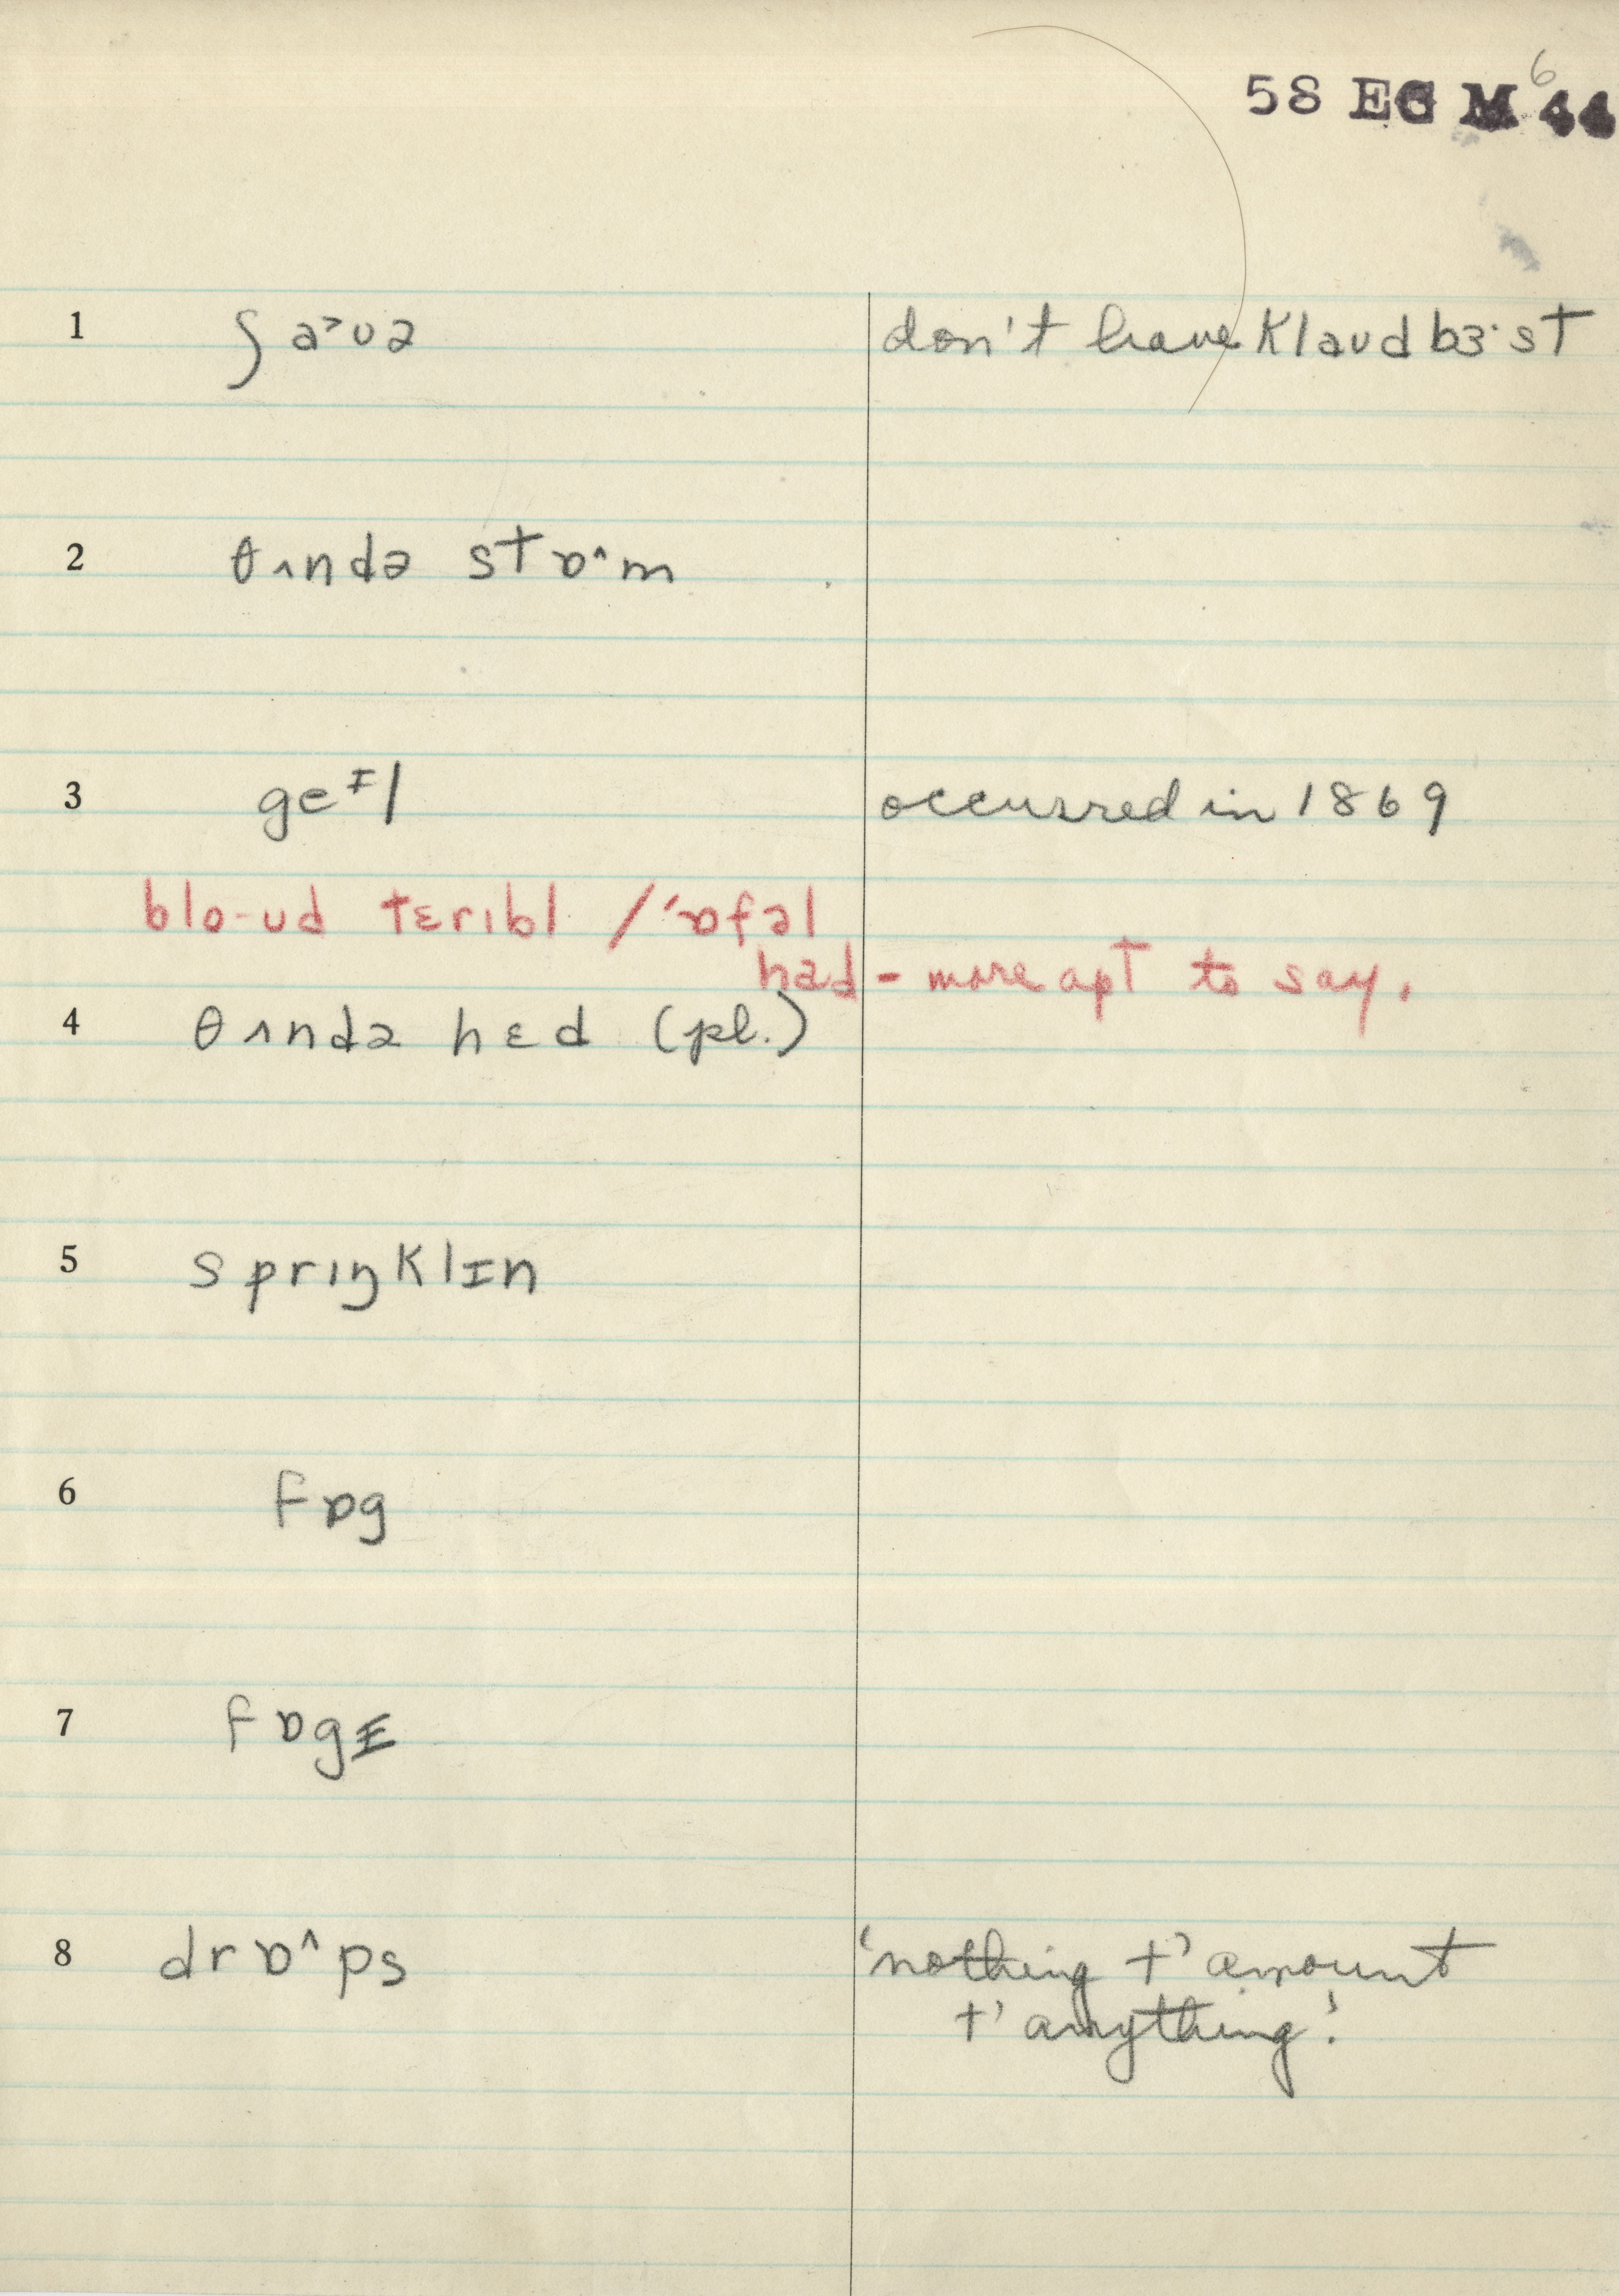 6
58 EG M 44
1 ʃ a˃ʊə don't have klaʊd bɜ·st
2 θʌndə stɒ^m
3 geᵻl occurred in 1869
blo-ʊd tɛrɪbl / 'ɒfəl
had - more apt to say.
4 θʌndə hɛd (pl.)
5 sprɪŋklɪn
6 fɒg
7 fɒgɪ
8 drɒ^ps 'nothing t' amount
t' anything!'